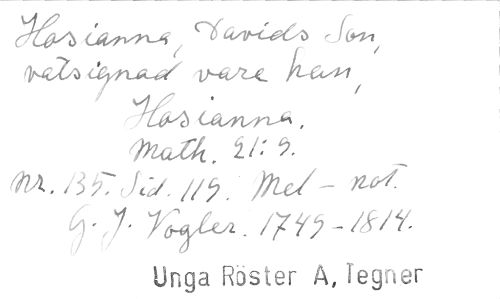 Hosianna, Davids Son,
vatsignad vare han,
Hosianna.
Math. 21:9.
Nr. 135. Sid. 119. Mel-not.
G. J. Vogler. 1749-1814.
Unga Röster A, Tegner